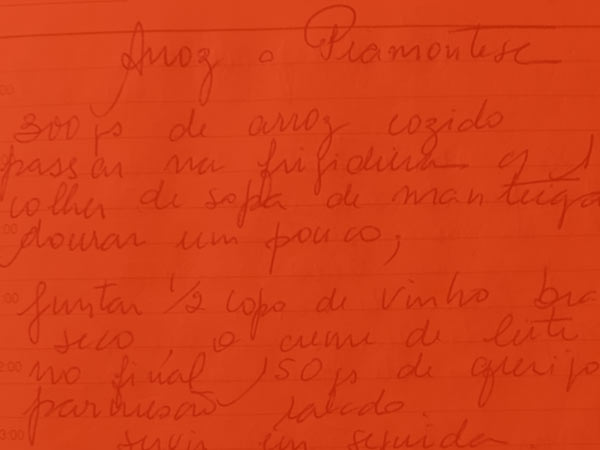 Arroz a Piamontese
300 gs de arroz cozido
passar na frigideira c/ 1
colher de sopa de manteiga
dourar um pouco;
juntar 1/2 copo de vinho bra
seco, o creme de leite
no final 150 gs de queijo
parmesão ralado.
servir em seguida.